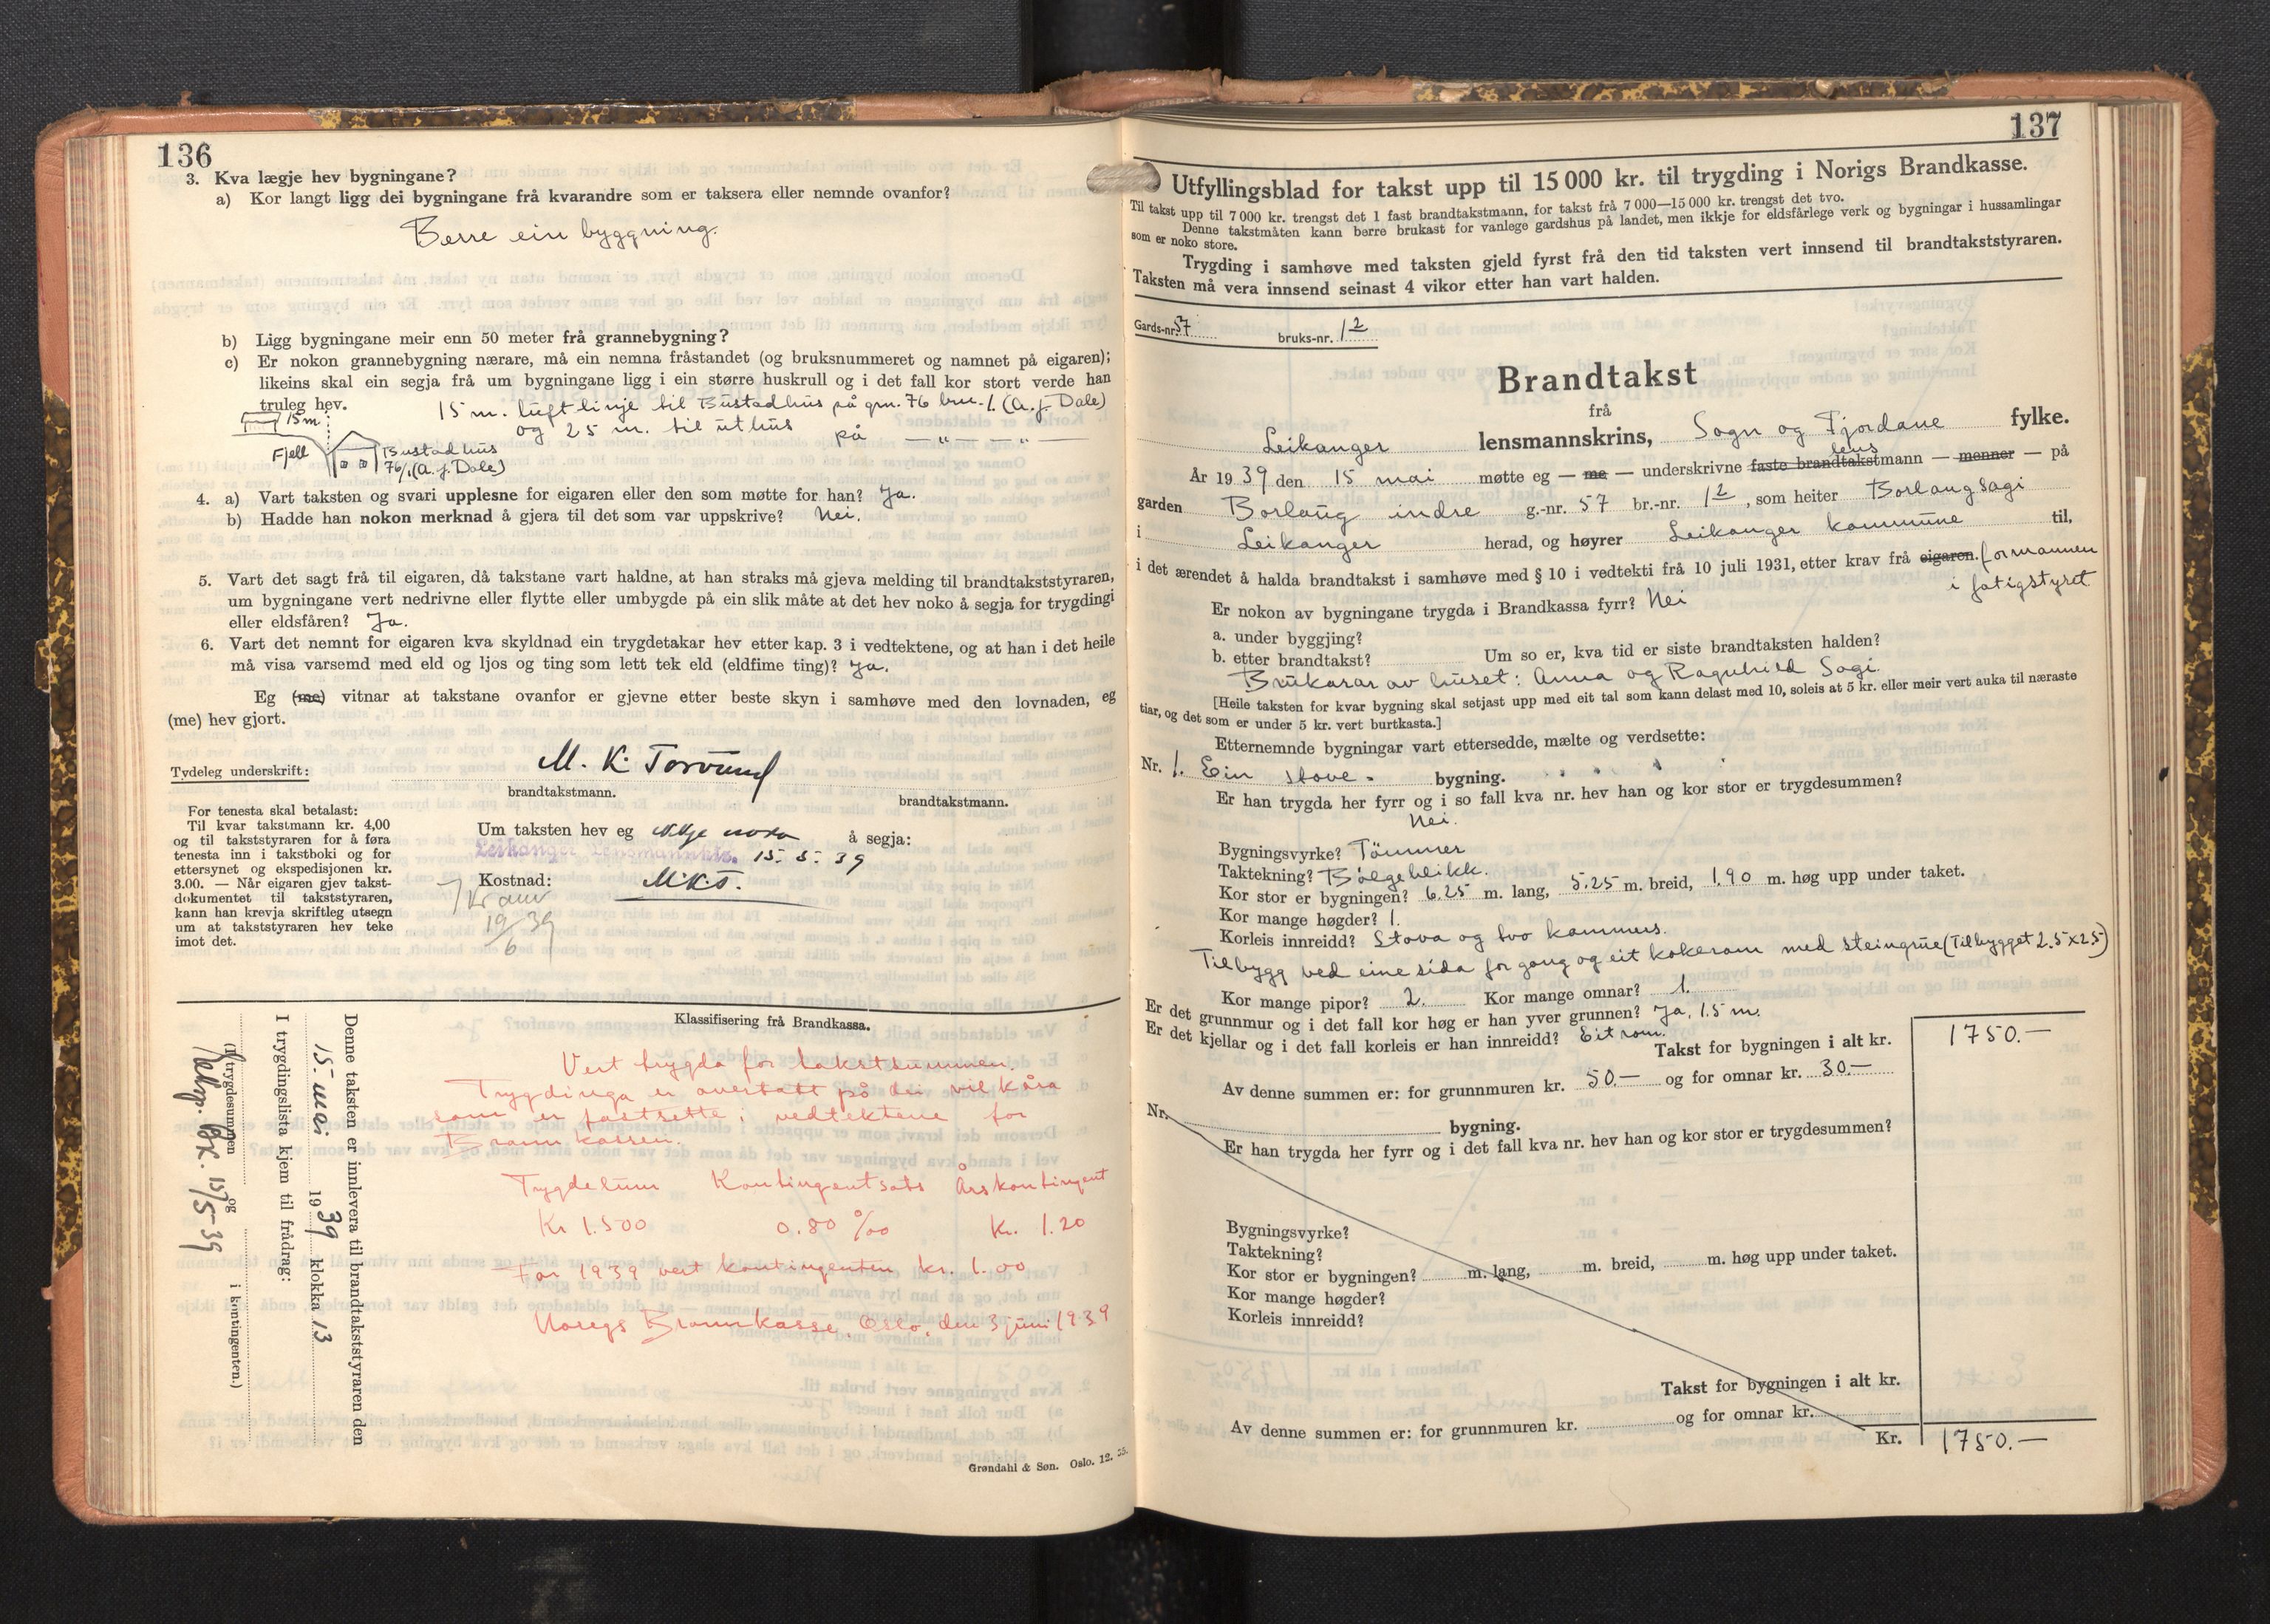 136
3. Kva lægje hev bygningane?
a) Kor langt ligg dei bygningane frå kvarandre som er taksera eller nemnde ovanfor?
Berre ein byggning.
b) Ligg bygningane meir enn 50 meter frå grannebygning?
c) Er nokon grannebygning nærare, må ein nemna fråstandet (og bruksnummeret og namnet på eigaren);
likeins skal ein segja frå um bygningane ligg i ein større huskrull og i det fall kor stort verde han
truleg hev.
15 m. luftlinje til Bustadhus på gnr. 76 bnr. 1. (A. J. Dale)
og 25 m. til uthus på — „ — — „ —
15 m.
Fjell
Bustadhus
76/1. (A. J. Dale)
4. a) Vart taksten og svari upplesne for eigaren eller den som møtte for han? Ja.
b) Hadde han nokon merknad å gjera til det som var uppskrive? Nei.
5. Vart det sagt frå til eigaren, då takstane vart haldne, at han straks må gjeva melding til brandtakststyraren,
um bygningane vert nedrivne eller flytte eller umbygde på ein slik måte at det hev noko å segja for trygdingi
eller eldsfåren? Ja.
6. Vart det nemnt for eigaren kva skyldnad ein trygdetakar hev etter kap. 3 i vedtektene, og at han i det heile
må visa varsemd med eld og ljos og ting som lett tek eld (eldfime ting)? Ja.
Eg (me) vitnar at takstane ovanfor er gjevne etter beste skyn i samhøve med den lovnaden, eg
(me) hev gjort.
Tydeleg underskrift: M. K. Torvund
brandtakstmann. brandtakstmann.
For tenesta skal betalast:
Til kvar takstmann kr. 4,00
og til takststyraren for å føra
tenesta inn i takstboki og for
ettersynet og ekspedisjonen kr.
3.00. — Når eigaren gjev takst-
dokumentet til takststyraren,
kann han krevja skriftleg utsegn
um at takststyraren hev teke
imot det.
Um taksten hev eg ikkje noko å segja:
Leikanger Lensmannktr. 15. 5. 39
Kostnad: M.K.T.
19/6 39
Klassifisering frå Brandkassa.
Vert trygda for takstsummen.
Trygdinga er overtatt på dei vilkåra
som er fastsette i vedtektene for
Brannkassen.
Trygdesum Kontingentsats Årskontingent
Kr 1.500 0.80 ‰ Kr. 1.20
For 1939 vert kontingenten kr. 1.00
Noregs Brannkasse, Oslo, den 3 juni 1939
Denne taksten er innlevera til brandtakststyraren den
15. mai 1939 klokka 13
I trygdingslista kjem til frådrag:
(I trygdesummen og i kontingenten.)
15/5-39
Grøndahl & Søn. Oslo. 12. 35.
137
Utfyllingsblad for takst upp til 15 000 kr. til trygding i Norigs Brandkasse.
Til takst upp til 7 000 kr. trengst det 1 fast brandtakstmann, for takst frå 7 000—15 000 kr. trengst det tvo.
Denne takstmåten kann berre brukast for vanlege gardshus på landet, men ikkje for eldsfårlege verk og bygningar i hussamlingar
som er noko store.
Trygding i samhøve med taksten gjeld fyrst frå den tid taksten vert innsend til brandtakststyraren.
Taksten må vera innsend seinast 4 vikor etter han vart halden.
Gards-nr. 57 bruks-nr. 12
Brandtakst
frå
Leikanger lensmannskrins, Sogn og Fjordane fylke.
År 1939 den 15 mai møtte eg — me — underskrivne faste brandtakstmann — menner — på
lens
garden Borlaug indre g.-nr. 57 br.-nr. 12, som heiter Borlaugsagi
i Leikanger herad, og høyrer Leikanger kommune til,
i det ærendet å halda brandtakst i samhøve med § 10 i vedtekti frå 10 juli 1931, etter krav frå eigaren. formannen
i fatigstyret
Er nokon av bygningane trygda i Brandkassa fyrr? Nei
a. under byggjing?
b. etter brandtakst? Um so er, kva tid er siste brandtaksten halden?
Brukarar av huset: Anna og Ragnhild Sagi.
[Heile taksten for kvar bygning skal setjast upp med eit tal som kann delast med 10, soleis at 5 kr. eller meir vert auka til næraste
tiar, og det som er under 5 kr. vert burtkasta.]
Etternemnde bygningar vart ettersedde, mælte og verdsette:
Nr. 1. Ein stove- bygning.
Er han trygda her fyrr og i so fall kva nr. hev han og kor stor er trygdesummen?
Nei.
Bygningsvyrke? Tömmer
Taktekning? Bölgeblikk.
Kor stor er bygningen? 6.25 m. lang, 5.25 m. breid, 1.90 m. høg upp under taket.
Kor mange høgder? 1.
Korleis innreidd? Stova og tvo kammers.
Tilbygg ved eine sida for gang og eit kokerom med steingrue (Tilbygget 2.5 x 2.5)
Kor mange pipor? 2. Kor mange omnar? 1.
Er det grunnmur og i det fall kor høg er han yver grunnen? Ja, 1.5 m.
Er det kjellar og i det fall korleis er han innreidd? Eit rom.
Takst for bygningen i alt kr. 1750.—
Av denne summen er: for grunnmuren kr. 50.— og for omnar kr. 30.—
Nr. bygning.
Er han trygda her fyrr og i det fall kva nr. hev han og kor stor er trygdesummen?
Bygningsvyrke?
Taktekning?
Kor stor er bygningen? m. lang, m. breid, m. høg upp under taket.
Kor mange høgder?
Korleis innreidd?
Takst for bygningen i alt kr.
Av denne summen er: for grunnmuren kr. og for omnar kr.
Kr. 1750.—